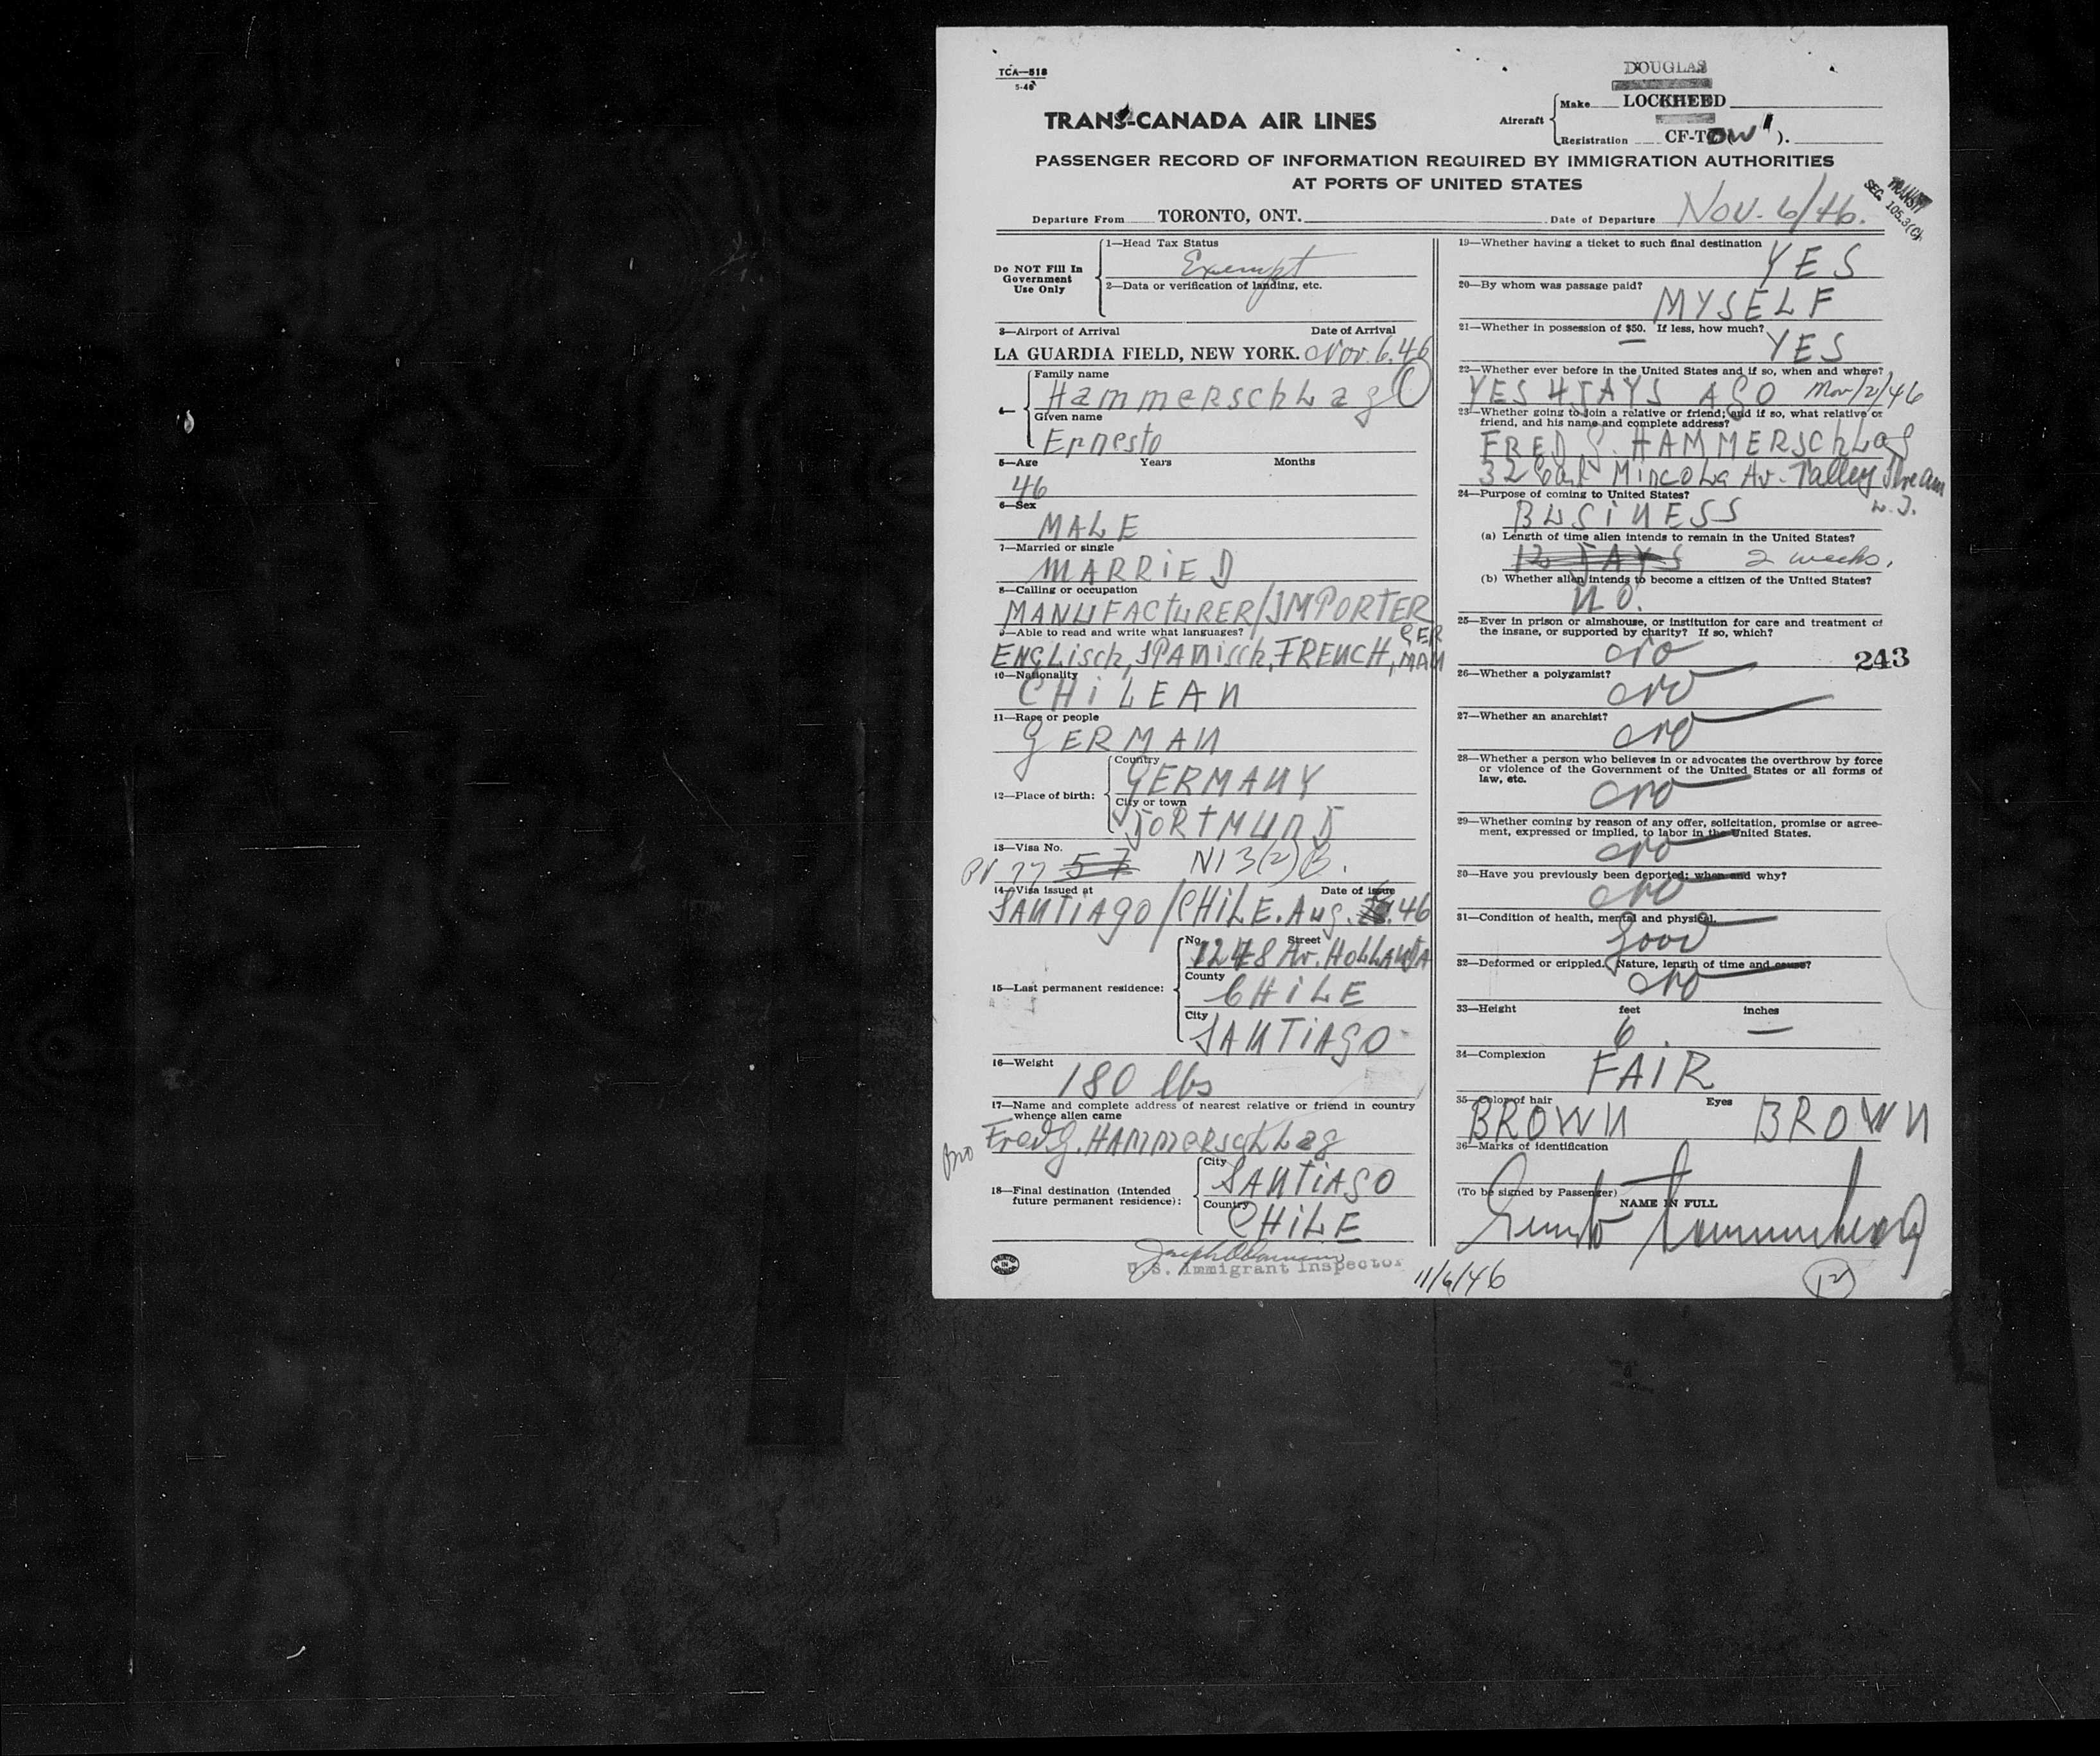 TCA—518
5-46
DOUGLAS
TRANS-CANADA AIR LINES
Aircraft
Make LOCKHEED
Registration CF-TDW ).
PASSENGER RECORD OF INFORMATION REQUIRED BY IMMIGRATION AUTHORITIES
AT PORTS OF UNITED STATES
TRANSIT
SEC. 105.3(C)
Departure From TORONTO, ONT. Date of Departure Nov. 6/46.
Do NOT Fill In
Government
Use Only
1—Head Tax Status
Exempt
2—Data or verification of landing, etc.
3—Airport of Arrival Date of Arrival
LA GUARDIA FIELD, NEW YORK. Nov. 6. 46
4— Family name
HammerschLag
Given name
Ernesto
5—Age Years Months
46
6—Sex
MALE
7—Married or single
MARRiED
8—Calling or occupation
MANUFACTURER/IMPORTER
9—Able to read and write what languages?
ENGLisch, SPANisch, FRENCH, GERMAN
10—Nationality
CHiLEAN
11—Race or people
GERMAN
12—Place of birth:
Country
GERMANY
City or town
DORTMUND
13—Visa No.
PV 77 57 NI 3(2) B.
14—Visa issued at Date of issue
SANTIAGO/CHiLE. Aug. .46
15—Last permanent residence:
No. Street
1248 Av. HOLLANDA
County
CHiLE
City
SANTIAGO
16—Weight
180 lbs
17—Name and complete address of nearest relative or friend in country
whence alien came
Bro Fred G. HAmmerschLag
18—Final destination (Intended
future permanent residence):
City
SANTIAGO
Country
CHiLE
U.S. Immigrant Inspector
11/6/46
19—Whether having a ticket to such final destination
YES
20—By whom was passage paid?
MYSELF
21—Whether in possession of $50. If less, how much?
YES
22—Whether ever before in the United States and if so, when and where?
YES 4 DAYS AGO Nov/2/46
23—Whether going to join a relative or friend; and if so, what relative or
friend, and his name and complete address?
FRED G. HAMMERSchLag
32 East Mineola Av. Valley Stream
24—Purpose of coming to United States?
BUSiNESS
(a) Length of time alien intends to remain in the United States?
12 DAYS 2 weeks.
(b) Whether alien intends to become a citizen of the United States?
NO.
25—Ever in prison or almshouse, or institution for care and treatment of
the insane, or supported by charity? If so, which?
no
243
26—Whether a polygamist?
no
27—Whether an anarchist?
no
28—Whether a person who believes in or advocates the overthrow by force
or violence of the Government of the United States or all forms of
law, etc.
no
29—Whether coming by reason of any offer, solicitation, promise or agree-
ment, expressed or implied, to labor in the United States.
no
30—Have you previously been deported; when and why?
no
31—Condition of health, mental and physical.
good
32—Deformed or crippled. Nature, length of time and cause?
no
33—Height feet inches
6 —
34—Complexion
FAIR
35—Color of hair Eyes
BROWN BROWN
36—Marks of identification
(To be signed by Passenger)
NAME IN FULL
Ernesto Hammerschlag
12